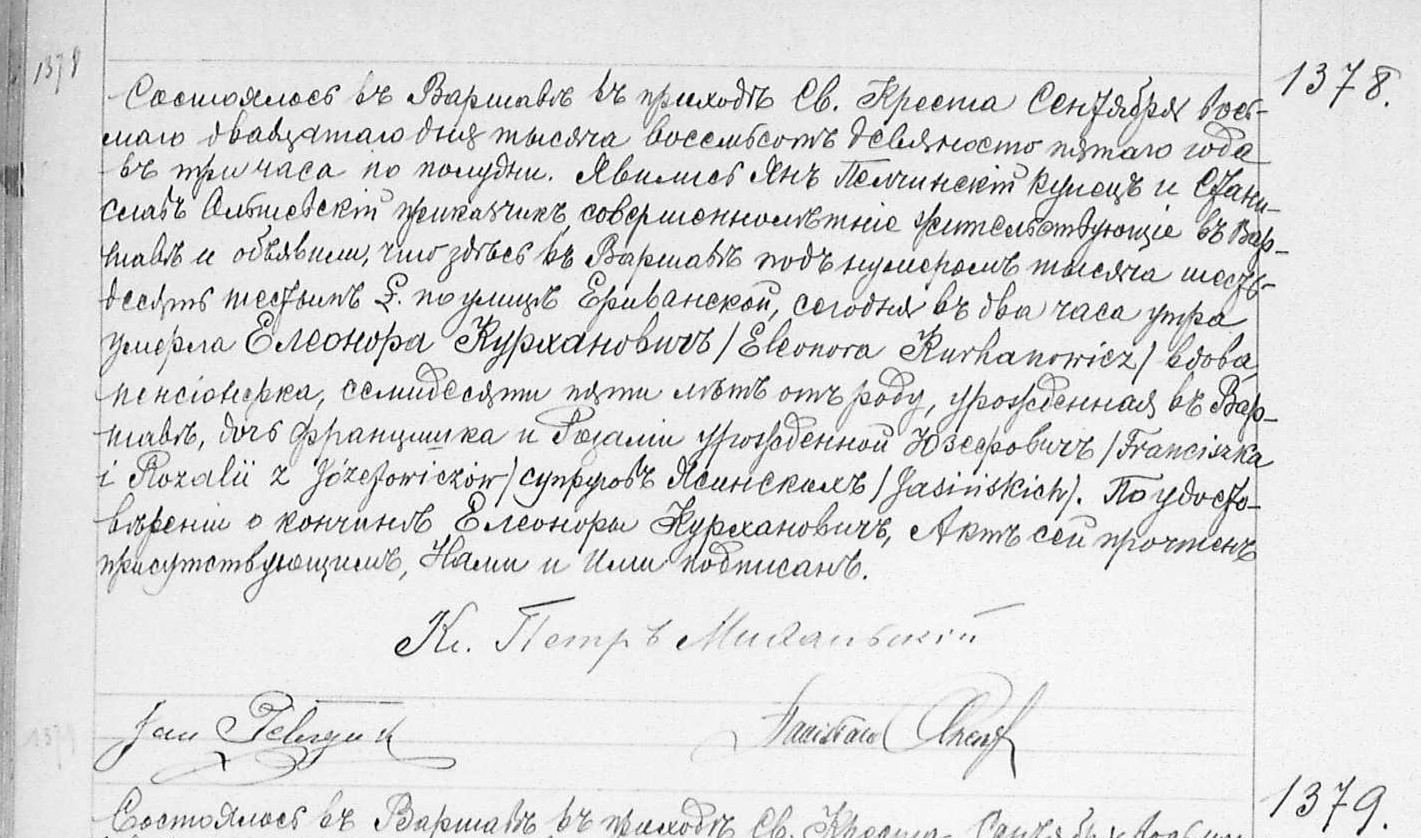 1378
1378.
Состоялось въ Варшавѣ въ приходѣ Св. Креста Сентября вось-
маго двадцатаго дня тысяча восемьсотъ девяносто пятаго года
въ три часа по полудни. Явились Янъ Пельчинскій купецъ и Стани-
славъ Ольшевскій прикащикъ совершеннолѣтніе жительствующіе въ Вар-
шавѣ и объявили, что здѣсь въ Варшавѣ подъ нумеромъ тысяча шесть-
десятъ шестымъ по улицѣ Ериванской, сегодня въ два часа утра
умерла Елеонора Курхановичъ /Eleonora Kurhanowicz/ вдова,
пенсіонерка, семидесяти пяти лѣтъ отъ роду, урожденная въ Вар-
шавѣ, дочь Францишка и Розаліи урожденной Юзефовичъ /Franciszka
i Rozalii z Józefowiczów/ супруговъ Ясинскихъ /Jasińskich/. По удосто-
вѣреніи о кончинѣ Елеоноры Курхановичъ, Актъ сей прочтенъ
присутствующимъ, Нами и Ими подписанъ.
Кс. Петръ
Jan
Stanisław
1379
1379.
Состоялось въ Варшавѣ въ приходѣ Св. Креста Сентября